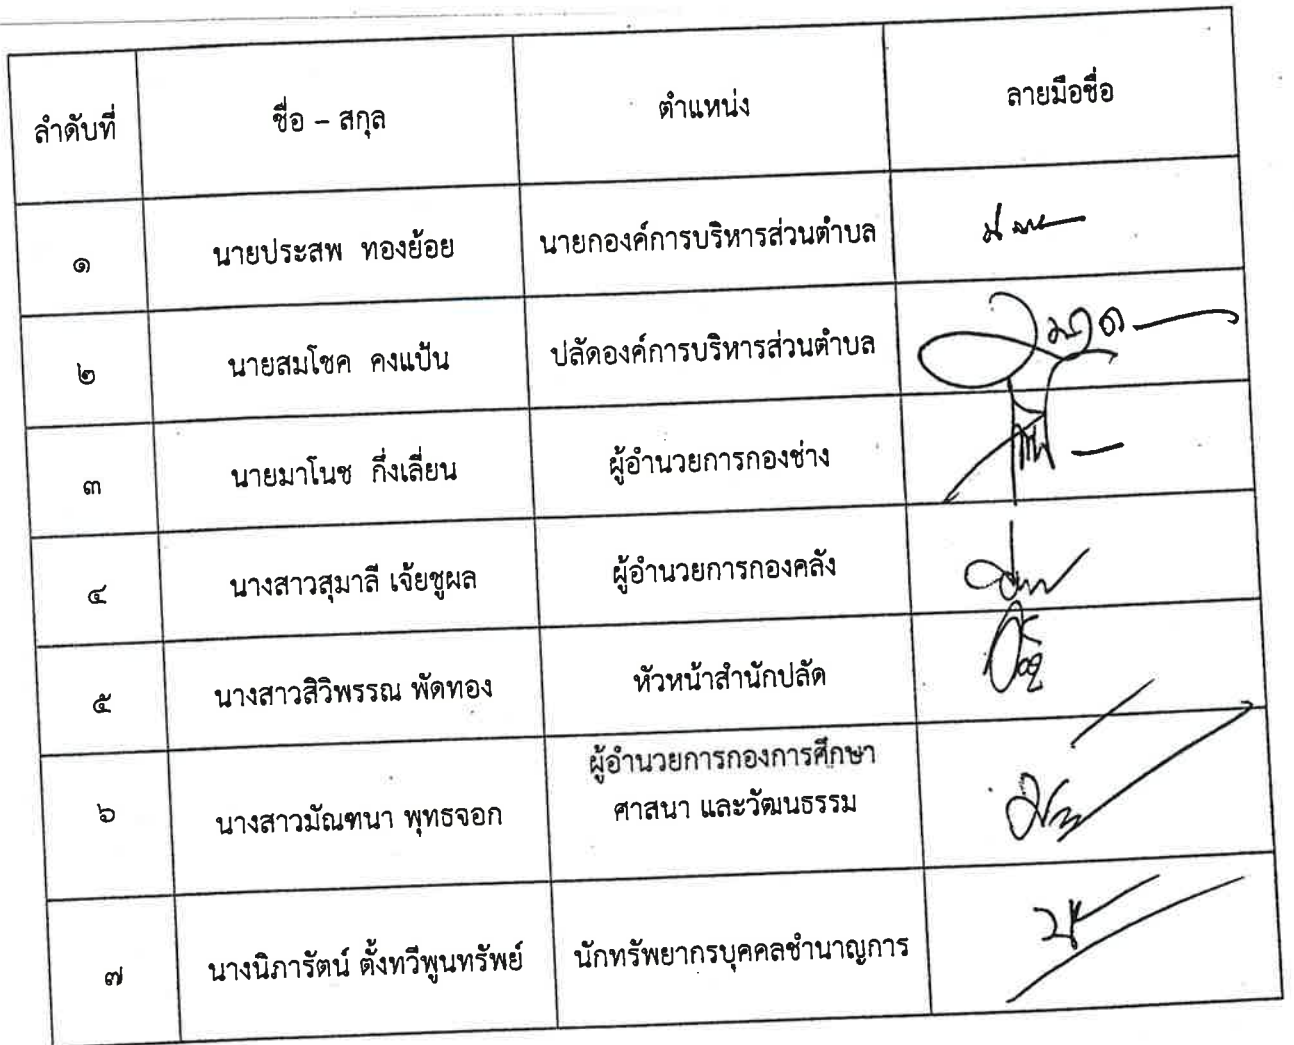 ลำดับที่ ชื่อ – สกุล ตำแหน่ง ลายมือชื่อ
๑ นายประสพ ทองย้อย นายกองค์การบริหารส่วนตำบล
๒ นายสมโชค คงแป้น ปลัดองค์การบริหารส่วนตำบล
๓ นายมาโนช กิ่งเลี่ยน ผู้อำนวยการกองช่าง
๔ นางสาวสุมาลี เจ้ยชูผล ผู้อำนวยการกองคลัง
๕ นางสาวสิวิพรรณ พัดทอง หัวหน้าสำนักปลัด
๖ นางสาวมัณฑนา พุทธจอก ผู้อำนวยการกองการศึกษา
ศาสนา และวัฒนธรรม
๗ นางนิภารัตน์ ตั้งทวีพูนทรัพย์ นักทรัพยากรบุคคลชำนาญการ